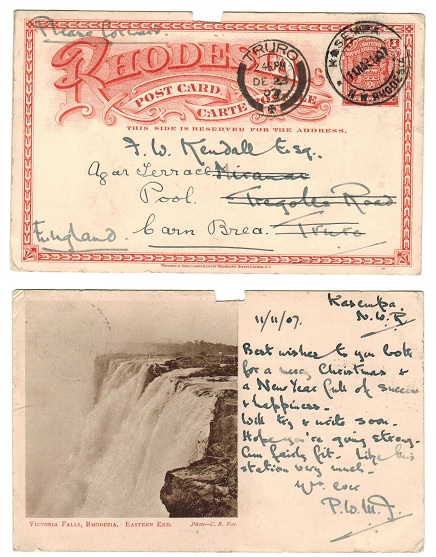 Please Forward.
RHODESIA
POST CARD.
CARTE POSTALE
TRURO
2.45PM
DE 23
07
THIS SIDE IS RESERVED FOR THE ADDRESS.
F. W. Kendall Esq.
Agar Terrace Miramar
Pool. Tregolls Road
England Carn Brea. Truro
Kasempa.
11/11/07. N.W.R
Best wishes to you both
for a merry Christmas &
a New Year full of success
& happiness.
Will try & write soon.
Hope you're going strong.
Am fairly fit. Like this
station very much.
P.W.M.J.
VICTORIA FALLS, RHODESIA. EASTERN END. Photo—C. B. Fox.